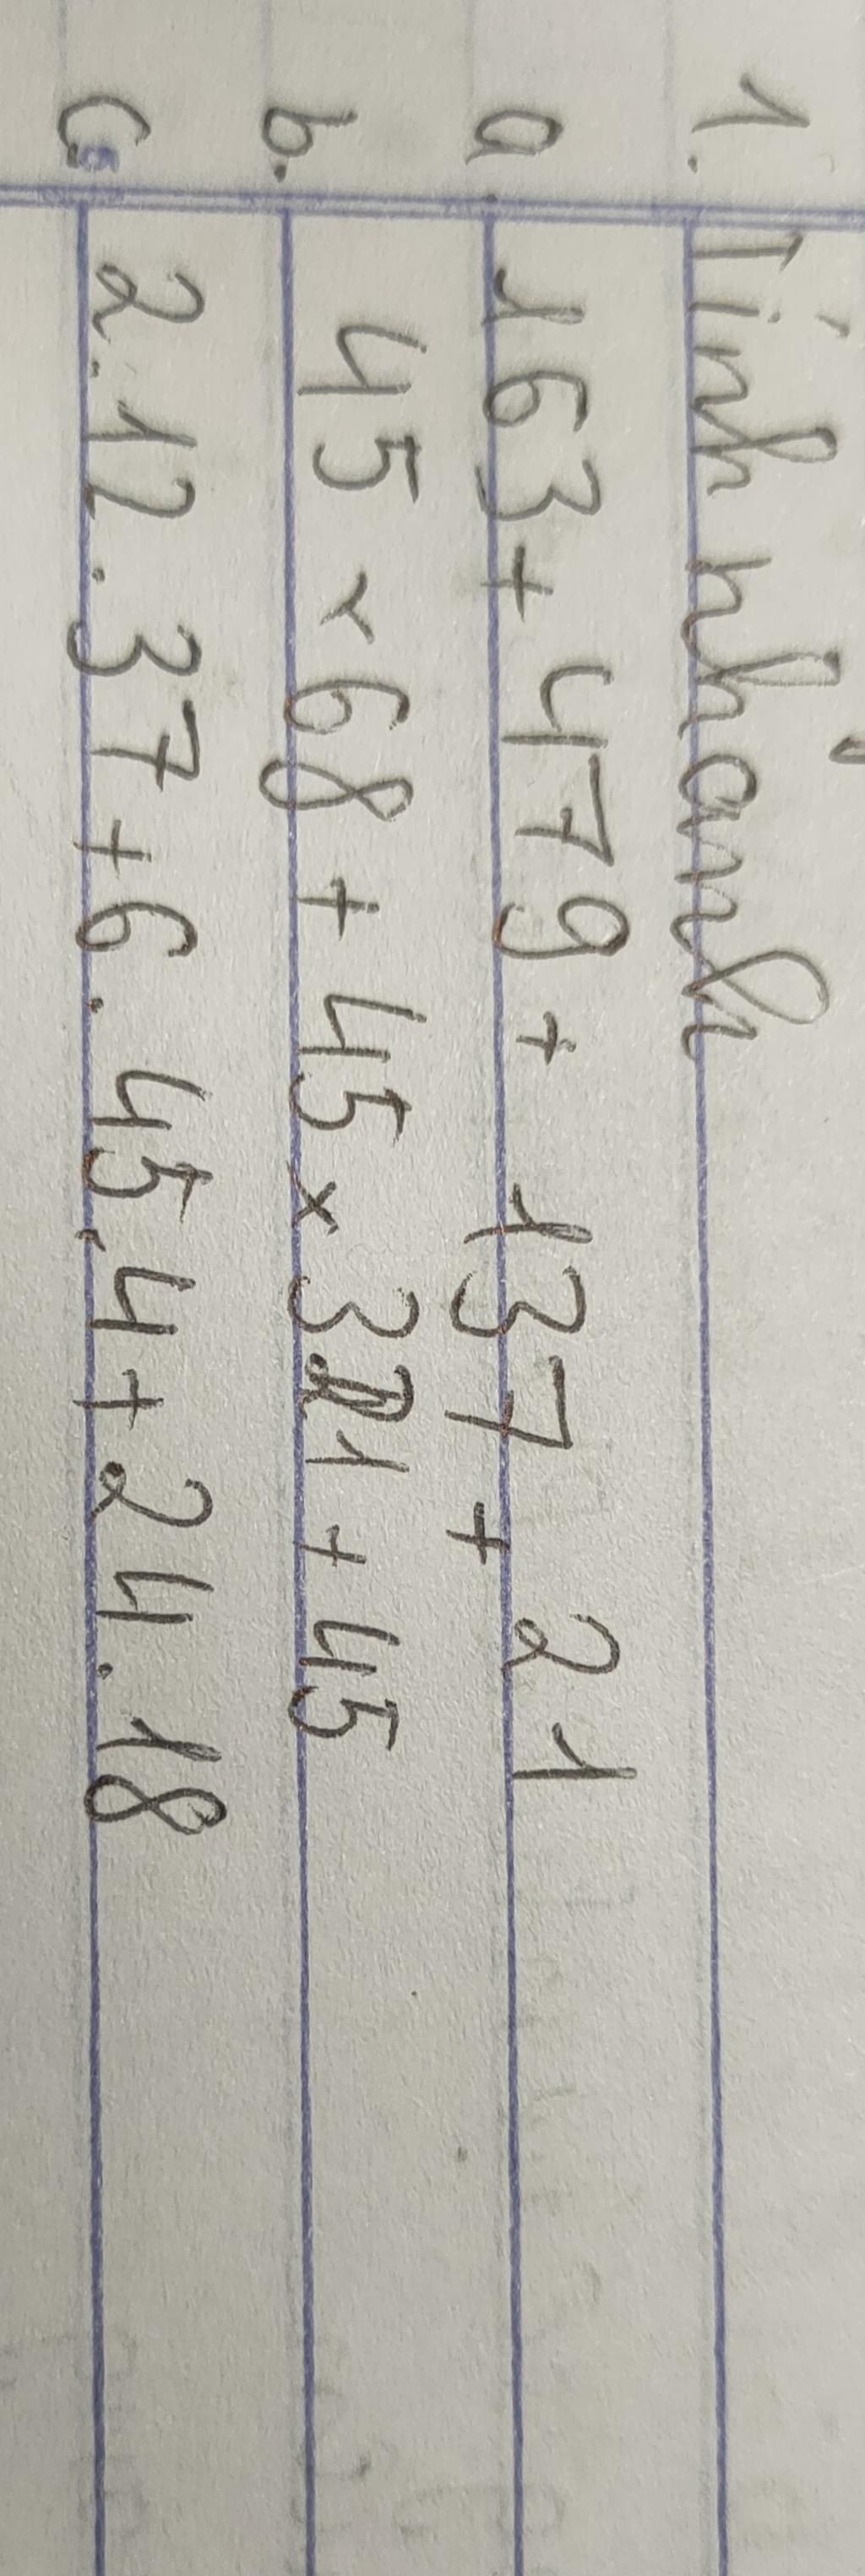 1. Tính nhanh
a. 163 + 479 + 137 + 21
b. 45 × 68 + 45 × 31 + 45
c. 2.12.37 + 6.45.4 + 24.18